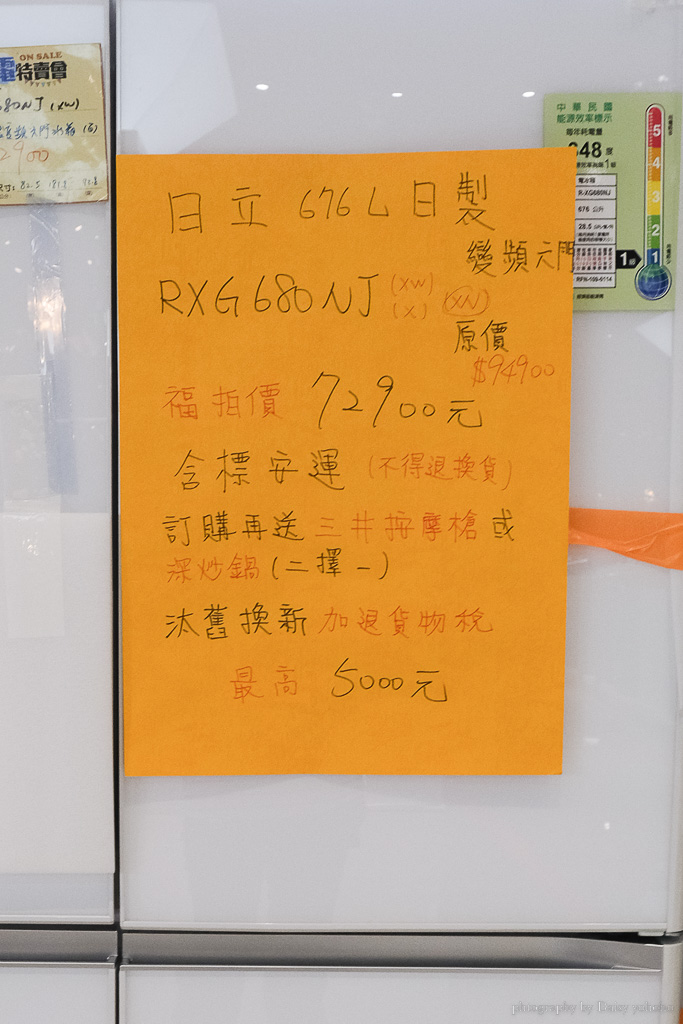 ON SALE
特賣會
680NJ (XW)
2900
中華民國
能源效率標示
每年耗電量
348 度
電冰箱
R-XG680NJ
676 公升
5
4
3
2
1
1級
日立 676L 日製
變頻六門
RXG680NJ (XW)
(X) (XN)
原價
$94900
福拍價 72900元
含標安運 (不得退換貨)
訂購再送三井按摩槍或
深炒鍋 (二擇一)
汰舊換新 加退貨物稅
最高 5000元
photography by Daisy yohoho